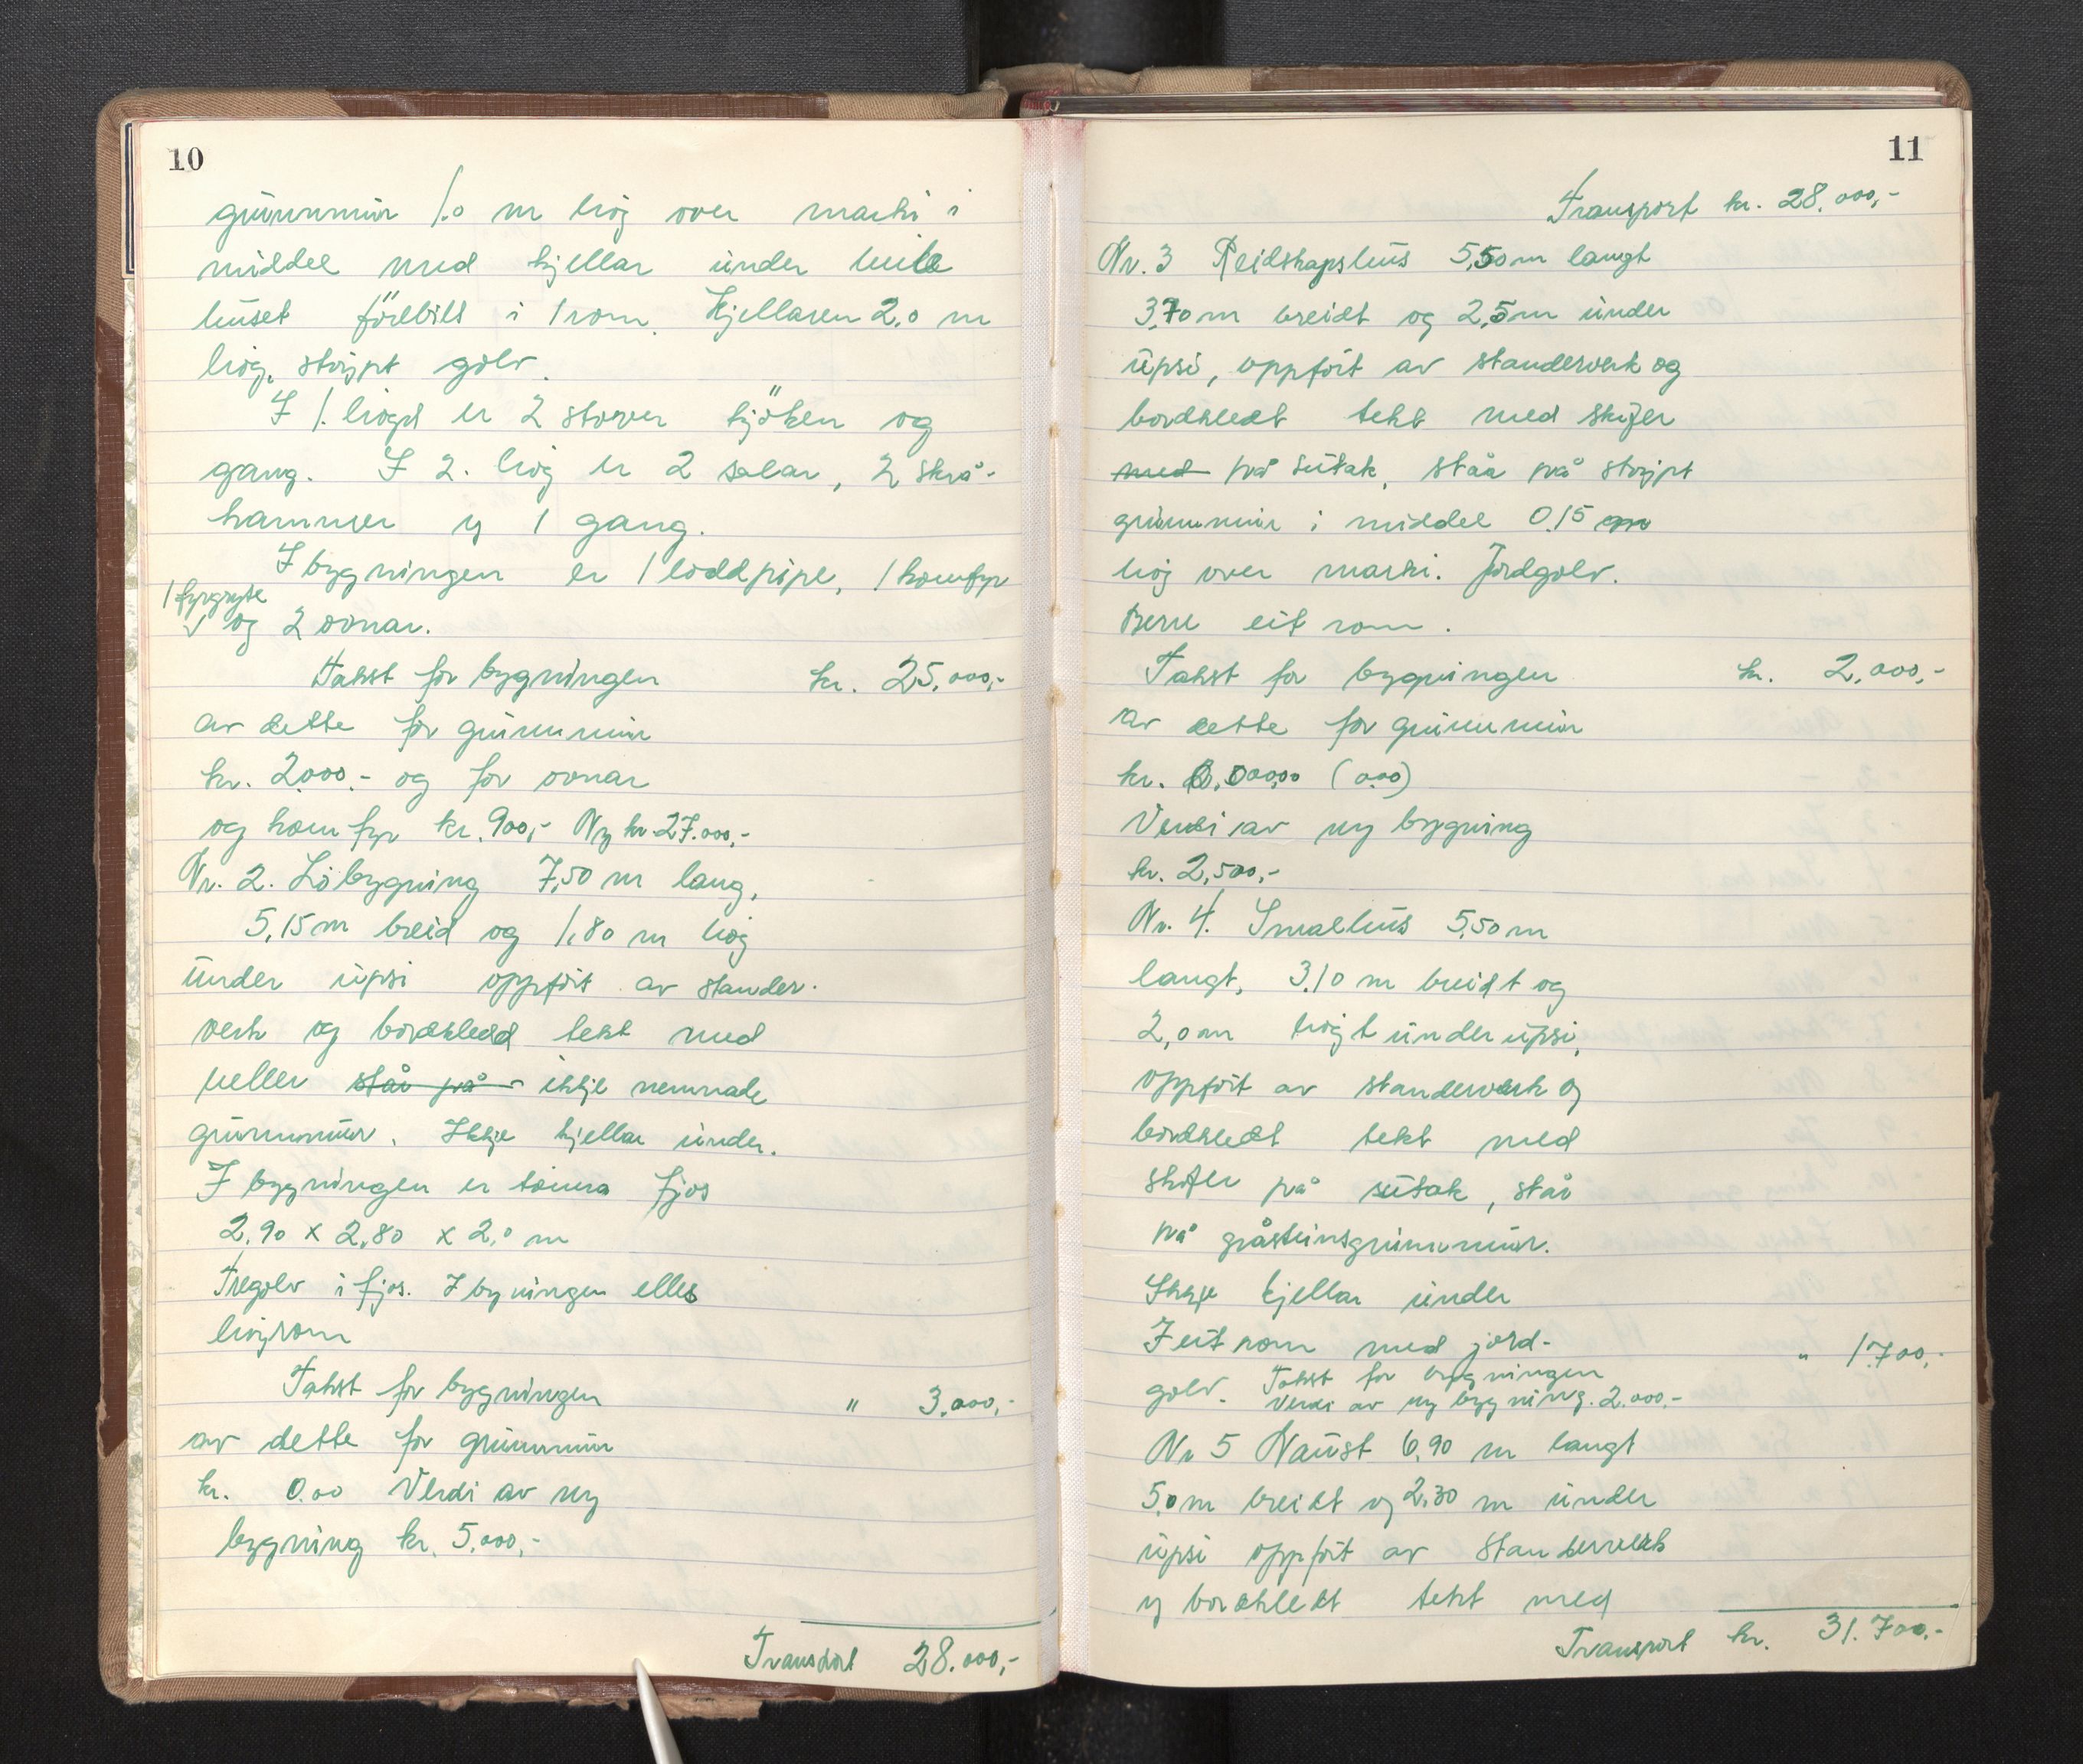 10
grunnmur 1.0 m høg over marki i
middel med kjellar under heile
huset fördelt i 1 rom. Kjellaren 2,0 m
høg, støypt golv.
I 1. høgd er 2 stover kjöken og
gang. I 2. høg er 2 salar, 2 skrå-
kammer og 1 gang.
I bygningen er 1 loddpipe, 1 komfyr
1 fyrgryte
og 2 ovnar.
Takst for bygningen kr. 25.000,-
av dette for grunnmur
kr. 2000.- og for ovnar
og komfyr kr. 900,- Ny kr. 27.000,-
Nr. 2. Löbygning 7,50 m lang,
5,15 m breid og 1,80 m høg
under upsi oppført av stander-
verk og bordkledd tekt med
heller står på ikkje nemnade
grunnmur. Ikkje kjellar under.
I bygningen er tømra fjos
2,90 x 2,80 x 2,0 m
Tregolv i fjos. I bygningen elles
høyrom
Takst for bygningen " 3.000,-
av dette for grunnmur
kr. 0.00 Verdi av ny
bygning kr. 5.000,-
Transport 28.000,-
11
Transport kr. 28.000,-
Nr. 3 Reidskapshus 5,50 m langt
3,70 m breidt og 2,5 m under
upsi, oppført av standerverk og
bordkledt tekt med skifer
med på sutak, står på støypt
grunnmur i middel 0.15 m
høg over marki. Jordgolv.
Berre eit rom.
Takst for bygningen kr. 2.000,-
av dette for grunnmur
kr. 0,0000 (000)
Verdi av ny bygning
kr. 2,500,-
Nr. 4. Smalhus 5,50 m
langt, 3.10 m breidt og
2,0 m høgt under upsi,
oppført av standerverk og
bordkledt tekt med
skifer på sutak, står
på gråsteinsgrunnmur.
Ikkje kjellar under
I eit rom med jord- " 1.700,-
golv. Takst for bygningen
Verdi av ny bygning. 2.000,-
Nr 5 Naust 6,90 m langt
5,0 m breidt og 2,30 m under
upsi oppført av standerverk
og bordkledt tekt med
Transport kr. 31.700,-